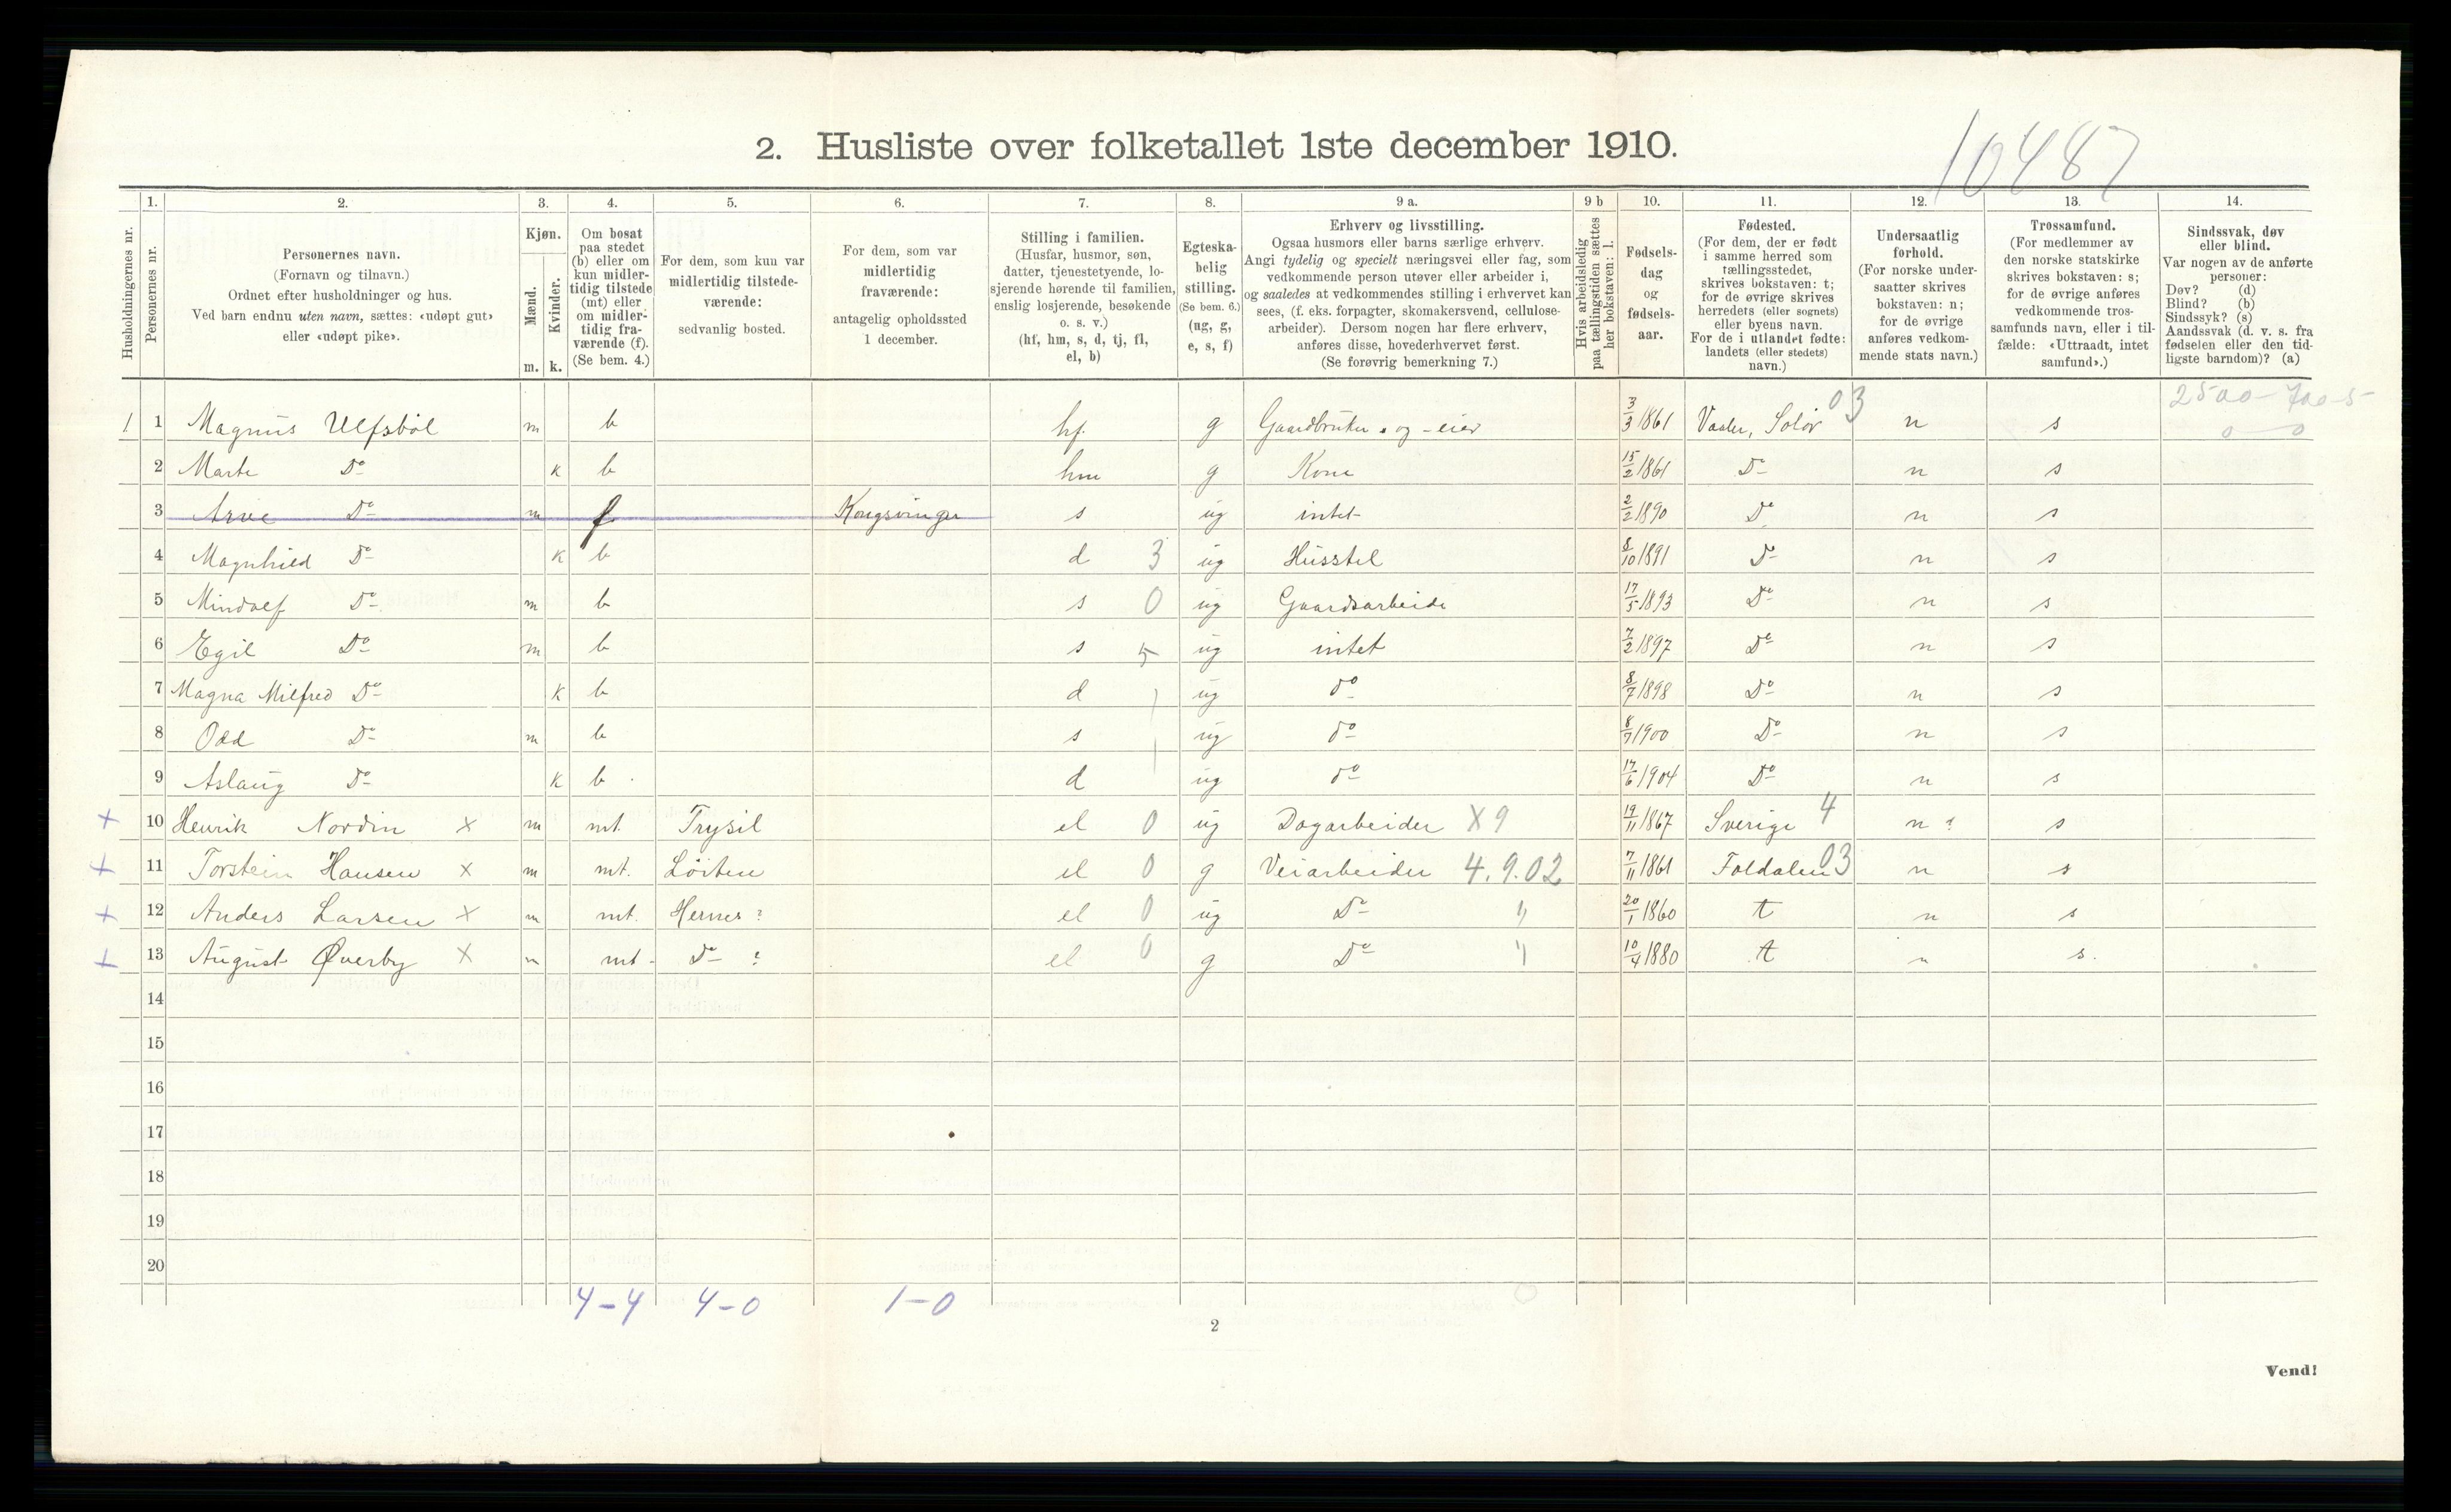 10487
2. Husliste over folketallet 1ste december 1910.
Husholdningernes nr.
1.
Personernes nr.
2.
Personernes navn.
(Fornavn og tilnavn.)
Ordnet efter husholdninger og hus.
Ved barn endnu uten navn, sættes: «udøpt gut»
eller «udøpt pike».
3.
Kjøn.
Mænd.
Kvinder.
m. k.
4.
Om bosat
paa stedet
(b) eller om
kun midler-
tidig tilstede
(mt) eller
om midler-
tidig fra-
værende (f).
(Se bem. 4.)
5.
For dem, som kun var
midlertidig tilstede-
værende:
sedvanlig bosted.
6.
For dem, som var
midlertidig
fraværende:
antagelig opholdssted
1 december.
7.
Stilling i familien.
(Husfar, husmor, søn,
datter, tjenestetyende, lo-
sjerende hørende til familien,
enslig losjerende, besøkende
o. s. v.)
(hf, hm, s, d, tj, fl,
el, b)
8.
Egteska-
belig
stilling.
(Se bem. 6.)
(ug, g,
e, s, f)
9 a.
Erhverv og livsstilling.
Ogsaa husmors eller barns særlige erhverv.
Angi tydelig og specielt næringsvei eller fag, som
vedkommende person utøver eller arbeider i,
og saaledes at vedkommendes stilling i erhvervet kan
sees, (f. eks. forpagter, skomakersvend, cellulose-
arbeider). Dersom nogen har flere erhverv,
anføres disse, hovederhvervet først.
(Se forøvrig bemerkning 7.)
9 b
Hvis arbeidsledig
paa tællingstiden sættes
her bokstaven: l.
10.
Fødsels-
dag
og
fødsels-
aar.
11.
Fødested.
(For dem, der er født
i samme herred som
tællingsstedet,
skrives bokstaven: t;
for de øvrige skrives
herredets (eller sognets)
eller byens navn.
For de i utlandet fødte:
landets (eller stedets)
navn.)
12.
Undersaatlig
forhold.
(For norske under-
saatter skrives
bokstaven: n;
for de øvrige
anføres vedkom-
mende stats navn.)
13.
Trossamfund.
(For medlemmer av
den norske statskirke
skrives bokstaven: s;
for de øvrige anføres
vedkommende tros-
samfunds navn, eller i til-
fælde: «Uttraadt, intet
samfund».)
14.
Sindssvak, døv
eller blind.
Var nogen av de anførte
personer:
Døv? (d)
Blind? (b)
Sindssyk? (s)
Aandssvak (d. v. s. fra
fødselen eller den tid-
ligste barndom)? (a)
1 1 Magnus Ulfsböl m b hf. g Gaardbruker og -eier 3/3 1861 Vaaler, Solör 03 n s
2 Marte Do k b hm g Kone 15/2 1861 Do n s
3 Arve Do m f Kongsvinger s ug intet 2/2 1890 Do n s
4 Magnhild Do k b d 3 ug Husstel 8/10 1891 Do n s
5 Mindolf Do m b s 0 ug Gaardsarbeide 17/5 1893 Do n s
6 Egil Do m b s 5 ug intet 7/2 1897 Do n s
7 Magna Milfred Do k b d ug do 8/7 1898 Do n s
8 Odd Do m b s ug do 8/7 1900 Do n s
9 Aslaug Do k b d ug do 17/6 1904 Do n s
+ 10 Henrik Nordin X m mt. Trysil el 0 ug Dagarbeider X9 19/11 1867 Sverige 4 n ? s
+ 11 Torstein Hansen X m mt. Löiten el 0 g Veiarbeider 4.9.02 7/11 1861 Foldalen 03 n s
+ 12 Anders Larsen X m mt. Hernes ? el 0 ug Do " 20/1 1860 t n s
+ 13 August Øverby X m mt Do ? el 0 g Do " 10/4 1880 t n s.
14
15
16
17
18
19
20
4-4 4-0 1-0
2
Vend!